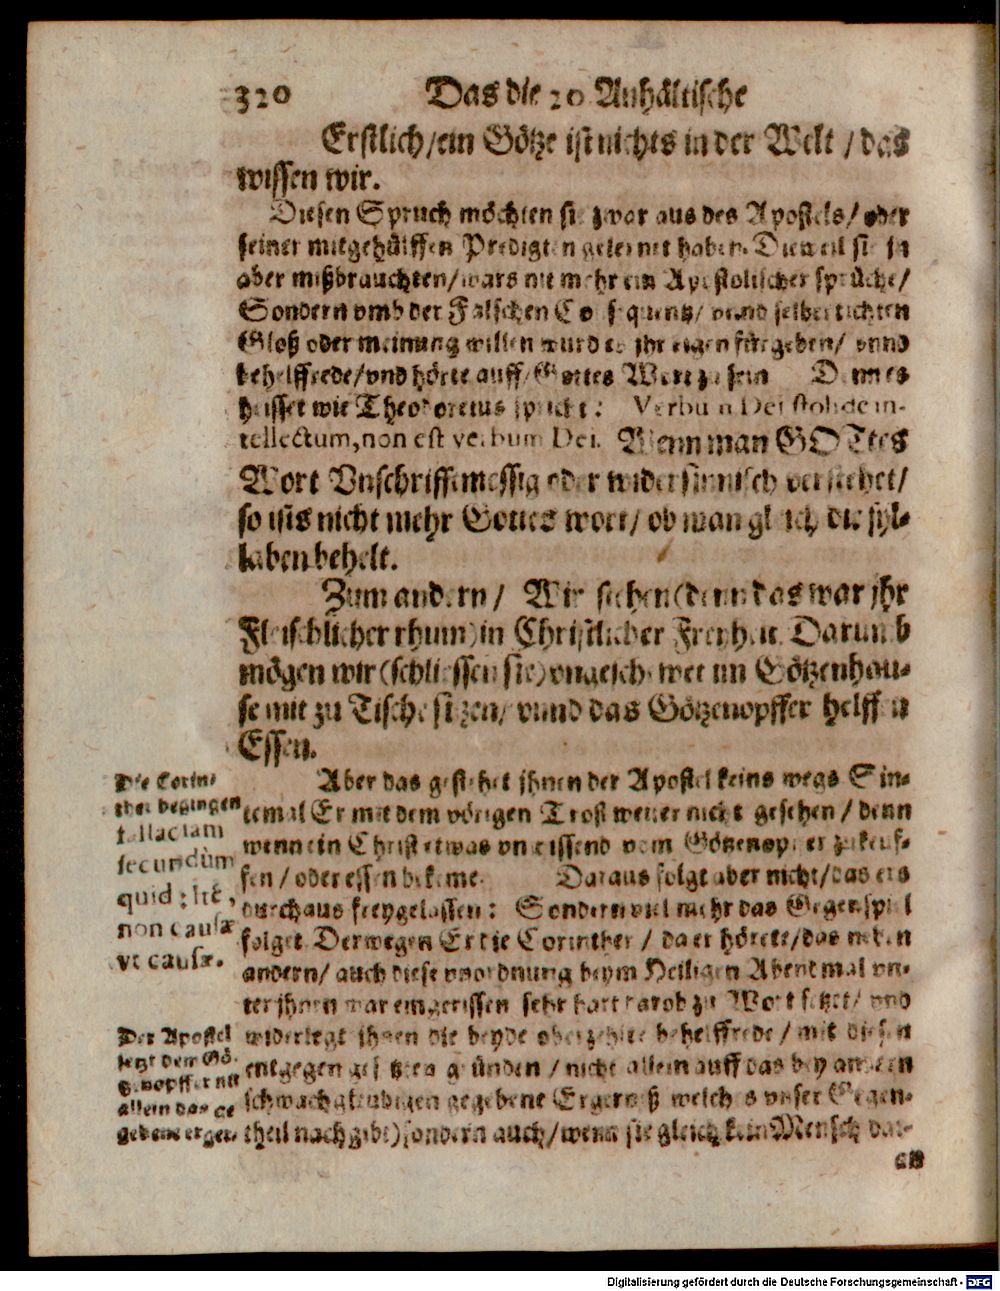 320 Das die 20 Anhältische
Erstlich/ein Götze ist nichts in der Welt / das
wissen wir.
Diesen Spruch möchten sie zwar aus des Apostels/ oder
seiner mitgehülffen Predigten gelernet haben. Dieweil sie jn
aber mißbrauchten/wars nit mehr ein Apostolischer sprüche/
Sondern vmb der Falschen Consequentz/ vnnd selbertichten
Gloß oder meinung willen wurd es jhr eigen fürgeben/ vnnd
behelffrede/vnd hörte auff/Gottes Wort zu sein Denn es
heisset wie Theodoretus spricht: Verbum Dei stolide in-
tellectum, non est verbum Dei. Wenn man GOTtes
Wort Vnschrifftmessig oder widersinnisch verstehet/
so ists nicht mehr Gottes wort/ ob man gleich die syl-
laben behelt.
Zum andern / Wir stehen (denn das war jhr
Fleischlicher rhum) in Christlicher Freyheit Darumb
mögen wir (schliessen sie) vngeschewet im Götzenhau-
se mit zu Tische sitzen/ vnnd das Götzenopffer helffen
Essen.
Aber das gestehet jhnen der Apostel keins wegs Sin-
temal Er mit dem vörigen Trost weiter nicht gesehen / denn
wenn ein Christ etwas vnwissend vom Götzenopffer zu keuf-
fen / oder essen bekeme. Daraus folgt aber nicht/das ers
durchaus freygelassen: Sondern viel mehr das Gegenspiel
folget Derwegen Er die Corinther / da er hörete/das neben
andern/ auch diese vnordnung beym Heiligen Abendmal vn-
ter jhnen war eingerissen sehr hart darob zu Wort setzet/ vnd
widerlegt jhnen die beyde oberzehlte behelffrede / mit diesen
entgegen gesetzten gründen / nicht allein auff das bey andern
schwachgleubigen gegebene Ergernis welches vnser Gegen-
theil nachgibt) sondern auch/wenn sie gleich kein Mensch dar-
an
Die Corin-
ther begingen
fallaciam
secundùm
quid : Itē,
non causæ
vt causæ.
Der Apostel
setzt dem Gö-
tzenopffer nit
allein das ge
gebene erger-
Digitalisierung gefördert durch die Deutsche Forschungsgemeinschaft - DFG